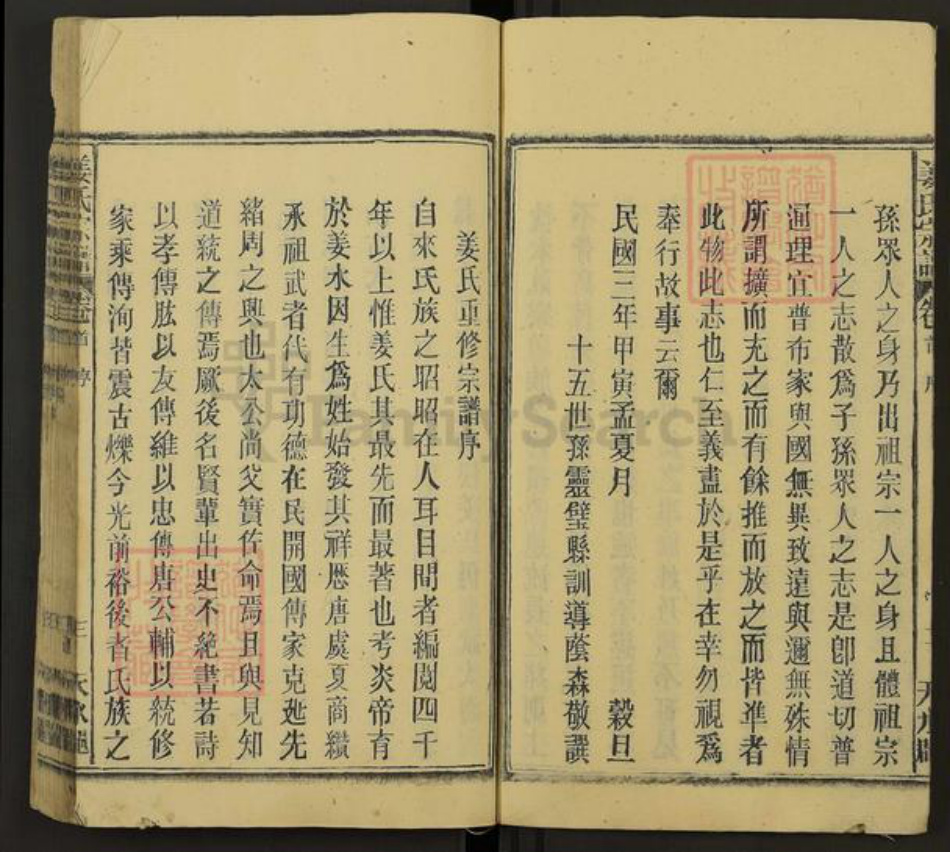 孫眾人之身乃出祖宗一人之身且體祖宗
一人之志散爲子孫眾人之志是卽道切普
通理宜普布家與國無異致遠與邇無殊情
所謂擴而充之而有餘推而放之而皆準者
此物此志也仁至義盡於是乎在幸勿視爲
奉行故事云爾
民國三年甲寅孟夏月 穀旦
十五世孫靈璧縣訓導蔭森敬譔
姜氏重修宗譜序
自來氏族之昭昭在人耳目間者編閱四千
年以上惟姜氏其最先而最著也考炎帝育
於姜水因生爲姓始發其祥歷唐虞夏商纘
承祖武者代有功德在民開國傳家克迆先
緒周之興也太公尚父實佐命焉且與見知
道統之傳焉厥後名賢輩出史不絶書若詩
以孝傳肱以友傳維以忠傳唐公輔以統修
家乘傳洵皆震古爍今光前裕後者氏族之
姜氏宗譜 卷首 序 三
FamilySearch